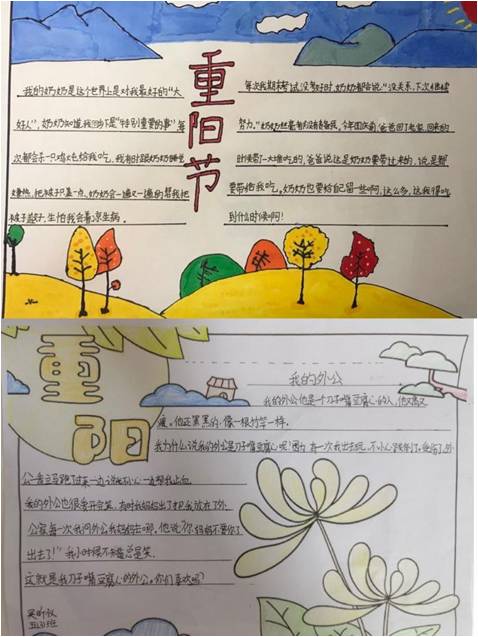 重阳节
我的奶奶是这个世界上是对我最好的“大
好人”，奶奶知道我回乡下是“特别重要的事”每
次都会杀一只鸡给我吃，我有时跟奶奶睡觉
嫌热，把被子盖一点，奶奶会一遍又一遍的帮我把
被子盖好，生怕我会着凉生病。
每次我期末考试没考好时，奶奶都会说“没关系，下次继续
努力。”奶奶总是有没有舍得，今年国庆前，爸爸回了老家，回来的
时候带了一大堆吃的，爸爸说这是奶奶要带过来的，说是都
要带给我吃，奶奶也要给自己留一些啊，这么多，这我得吃
到什么时候啊！
重阳
我的外公
我的外公他是个刀子嘴豆腐心的人，他又高又
瘦。他还黑黑的，像一根竹竿一样。
我为什么说我的外公是刀子嘴豆腐心呢？因为有一次我出去玩，不小心
公一看立马跑了过来一边说我不小心一边帮我止血
我的外公也很爱开玩笑，有时我妈妈出了把我放在了外
公家每一次我问外公我妈妈去哪，他说“你妈妈不要你了
出去了！”我小时很不知道总是哭。
这就是我刀子嘴豆腐心的外公。你们喜欢吗？